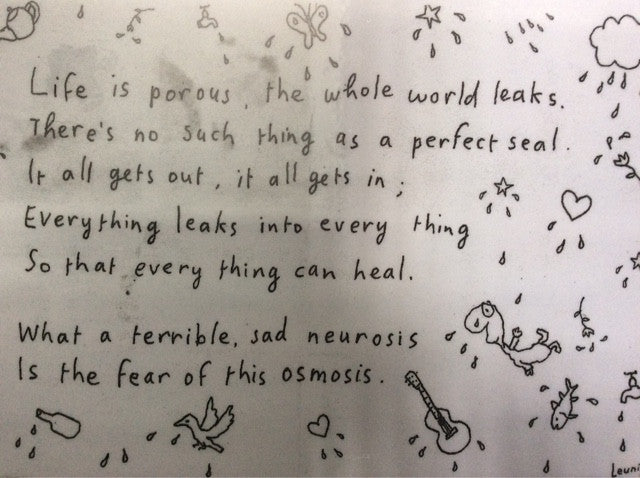 Life is porous, the whole world leaks.
There's no such thing as a perfect seal.
It all gets out, it all gets in;
Everything leaks into every thing
So that every thing can heal.
What a terrible, sad neurosis
Is the fear of this osmosis.
Leuni